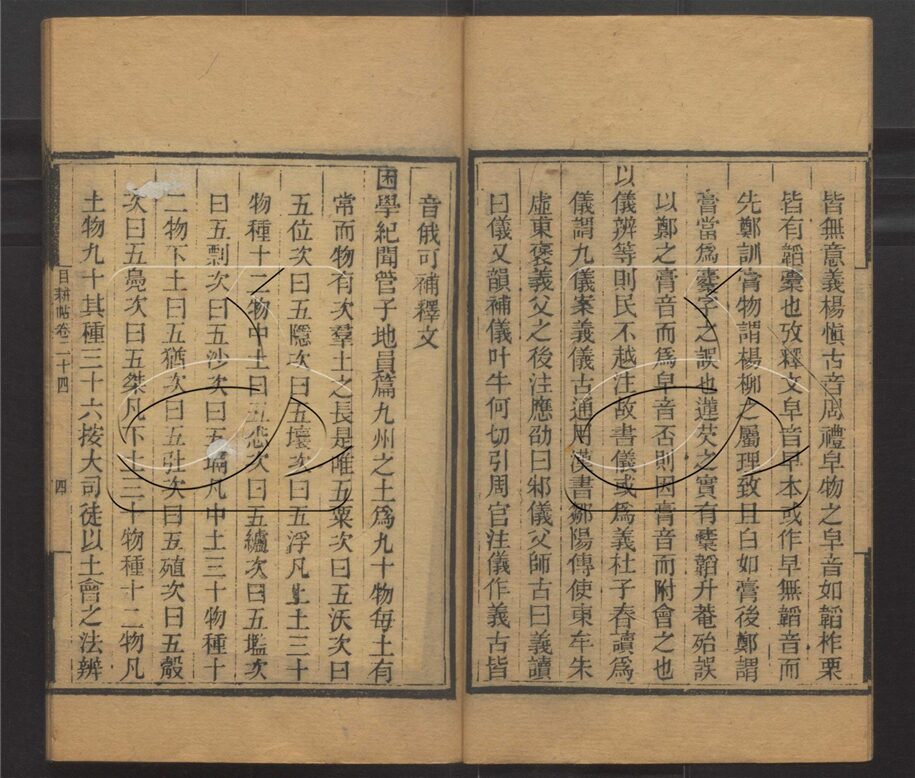 皆無意義楊愼古音周禮皁物之皁音如韜柞栗
皆有韜櫜也攷釋文皁音早本或作早無韜音而
先鄭訓膏物謂楊柳之屬理致且白如膏後鄭謂
膏當爲櫜字之誤也蓮芡之實有櫜韜升菴殆誤
以鄭之膏音而爲皁音否則因膏音而附會之也
以儀辨等則民不越注故書儀或爲義杜子春讀爲
儀謂九儀案義儀古通用漢書鄒陽傳使東牟朱
虛東褒義父之後注應劭曰邾儀父師古曰義讀
曰儀又韻補儀叶牛何切引周官注儀作義古皆
音俄可補釋文
困學紀聞管子地員篇九州之土爲九十物每土有
常而物有次羣土之長是唯五粟次曰五沃次曰
五位次曰五隱次曰五壤次曰五浮凡上土三十
物種十二物中土曰五怸次曰五纑次曰五壏次
曰五剽次曰五沙次曰五塥凡中土三十物種十
二物下土曰五猶次曰五壯次曰五殖次曰五觳
次曰五鳧次曰五桀凡下土三十物種十二物凡
土物九十其種三十六按大司徒以土會之法辨
目耕帖卷二十四
四